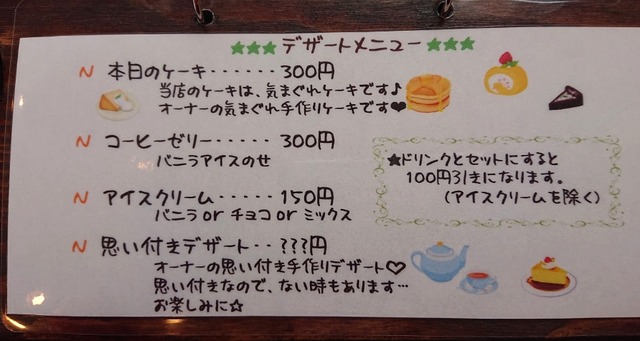 ★★★デザートメニュー★★★
N 本日のケーキ・・・・・・300円
当店のケーキは、気まぐれケーキです♪
オーナーの気まぐれ手作りケーキです♥
N コーヒーゼリー・・・・・300円
バニラアイスのせ
N アイスクリーム・・・・・150円
バニラ or チョコ or ミックス
N 思い付きデザート・・???円
オーナーの思い付き手作りデザート♡
思い付きなので、ない時もあります…
お楽しみに☆
★ドリンクとセットにすると
100円引きになります。
(アイスクリームを除く)